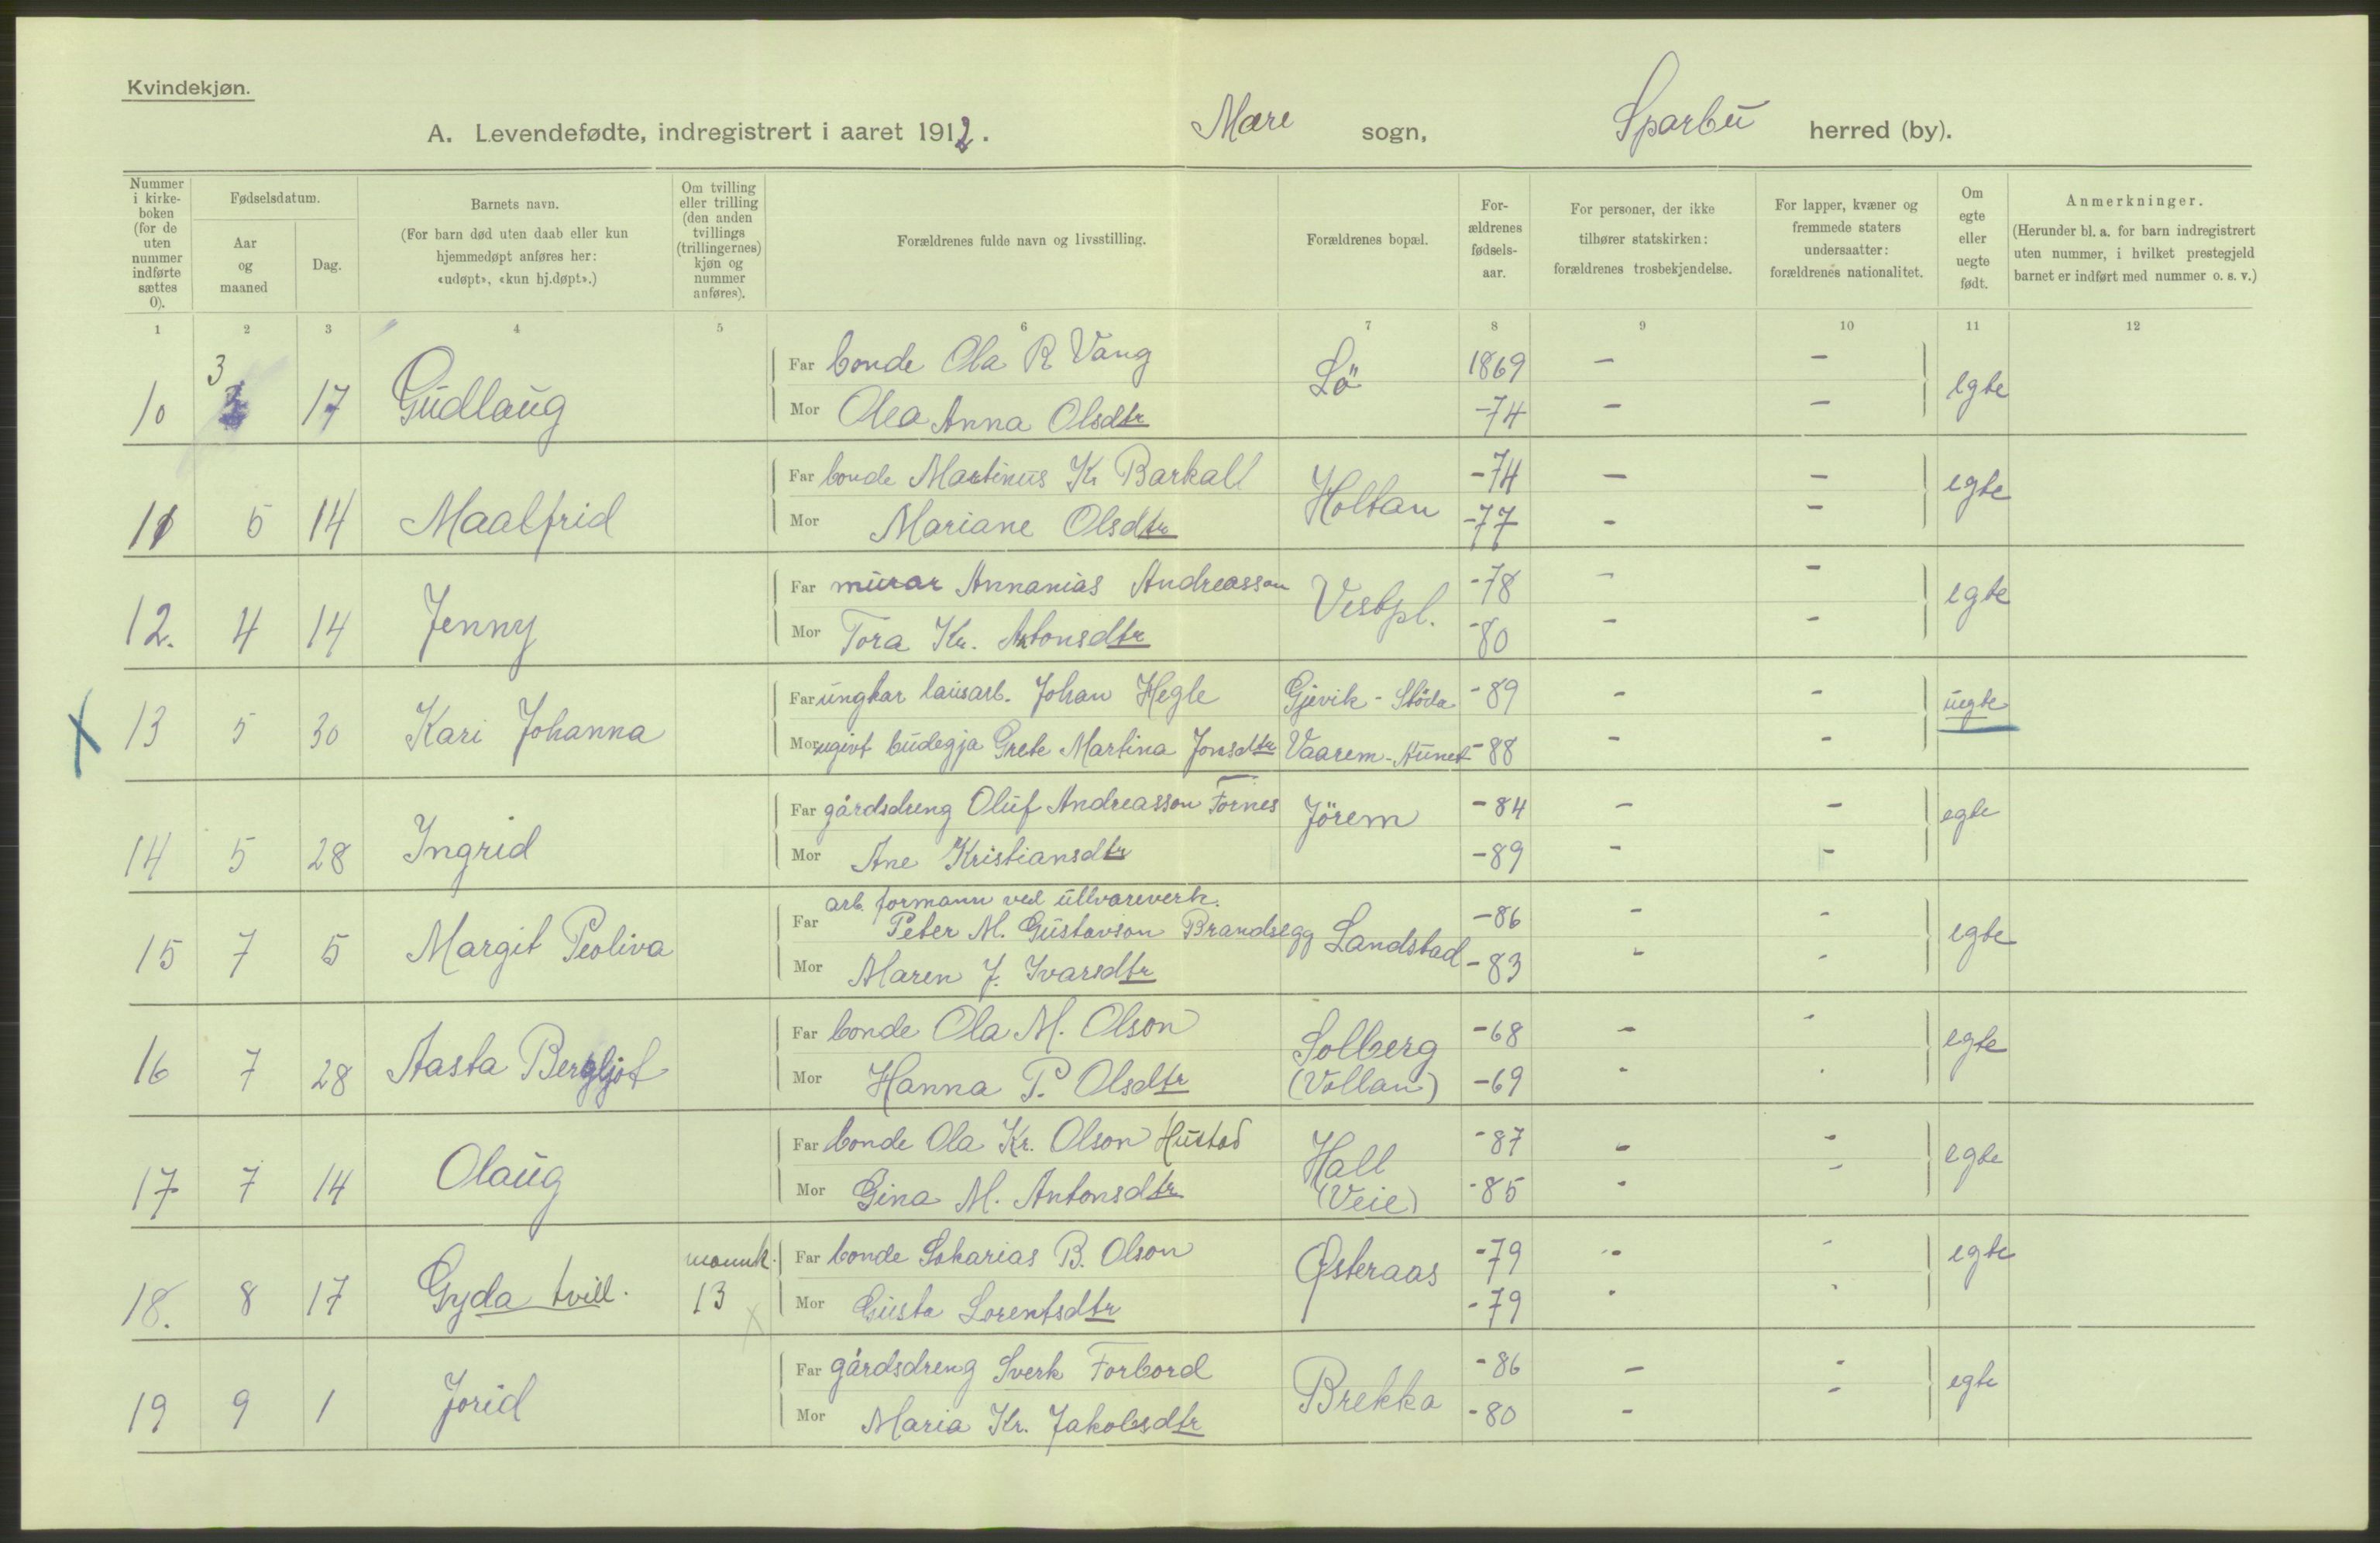 Kvindekjøn.
A. Levendefødte, indregistrert i aaret 1912. Mære sogn, Sparbu herred (by).
Nummer i kirkeboken (for de uten nummer indførte sættes 0).
Fødselsdatum.
Aar og maaned
Dag.
Barnets navn.
(For barn død uten daab eller kun hjemmedøpt anføres her: «udøpt», «kun hj.døpt».)
Om tvilling eller trilling (den anden tvillings (trillingernes) kjøn og nummer anføres).
Forældrenes fulde navn og livsstilling.
Forældrenes bopæl.
Forældrenes fødselsaar.
For personer, der ikke tilhører statskirken: forældrenes trosbekjendelse.
For lapper, kvæner og fremmede staters undersaatter: forældrenes nationalitet.
Om egte eller uegte født.
Anmerkninger.
(Herunder bl. a. for barn indregistrert uten nummer, i hvilket prestegjeld barnet er indført med nummer o. s. v.)
1 2 3 4 5 6 7 8 9 10 11 12
10 3 17 Gudlaug Far bonde Ola R Vang Lö 1869 - - egte
Mor Olea Anna Olsdtr -74 - -
11 5 14 Maalfrid Far bonde Martinus K. Barkall Holtan -74 - - egte
Mor Mariane Olsdtr -77 - -
12. 4 14 Jenny Far murar Annanias Andreasson Vestpl. -78 - - egte
Mor Tora Kr. Antonsdtr -80 - -
X 13 5 30 Kari Johanna Far ungkar lausarb. Johan Hegle Gjevik - Stöda -89 - - uegte
Mor ugivt budegja Grete Martina Jonsdtr Vaarem - Aunet -88 - -
14 5 28 Ingrid Far gårdsdreng Oluf Andreasson Fornes Jörem -84 - - egte
Mor Ane Kristiansdtr -89 - -
arb. formann ved ullvareverk.
15 7 5 Margit Peoliva Far Peter M. Gustavson Brandsegg Landstad -86 - - egte
Mor Maren J. Ivarsdtr -83 - -
16 7 28 Aasta Bergljot Far bonde Ola M. Olson Solberg -68 - - egte
Mor Hanna P. Olsdtr (Vollan) -69 - -
17 7 14 Olaug Far bonde Ola Kr. Olson Hustad Hall -87 - - egte
Mor Gina M. Antonsdtr (Veie) -85 - -
18. 8 17 Gyda tvill. mannk. Far bonde Sakarias B. Olson Østeraas -79 - - egte
13 X Mor Gusta Lorentsdtr -79 - -
19 9 1 Jorid Far gårdsdreng Sverk Forbord Brekka -86 - - egte
Mor Maria Kr. Jakobsdtr -80 - -